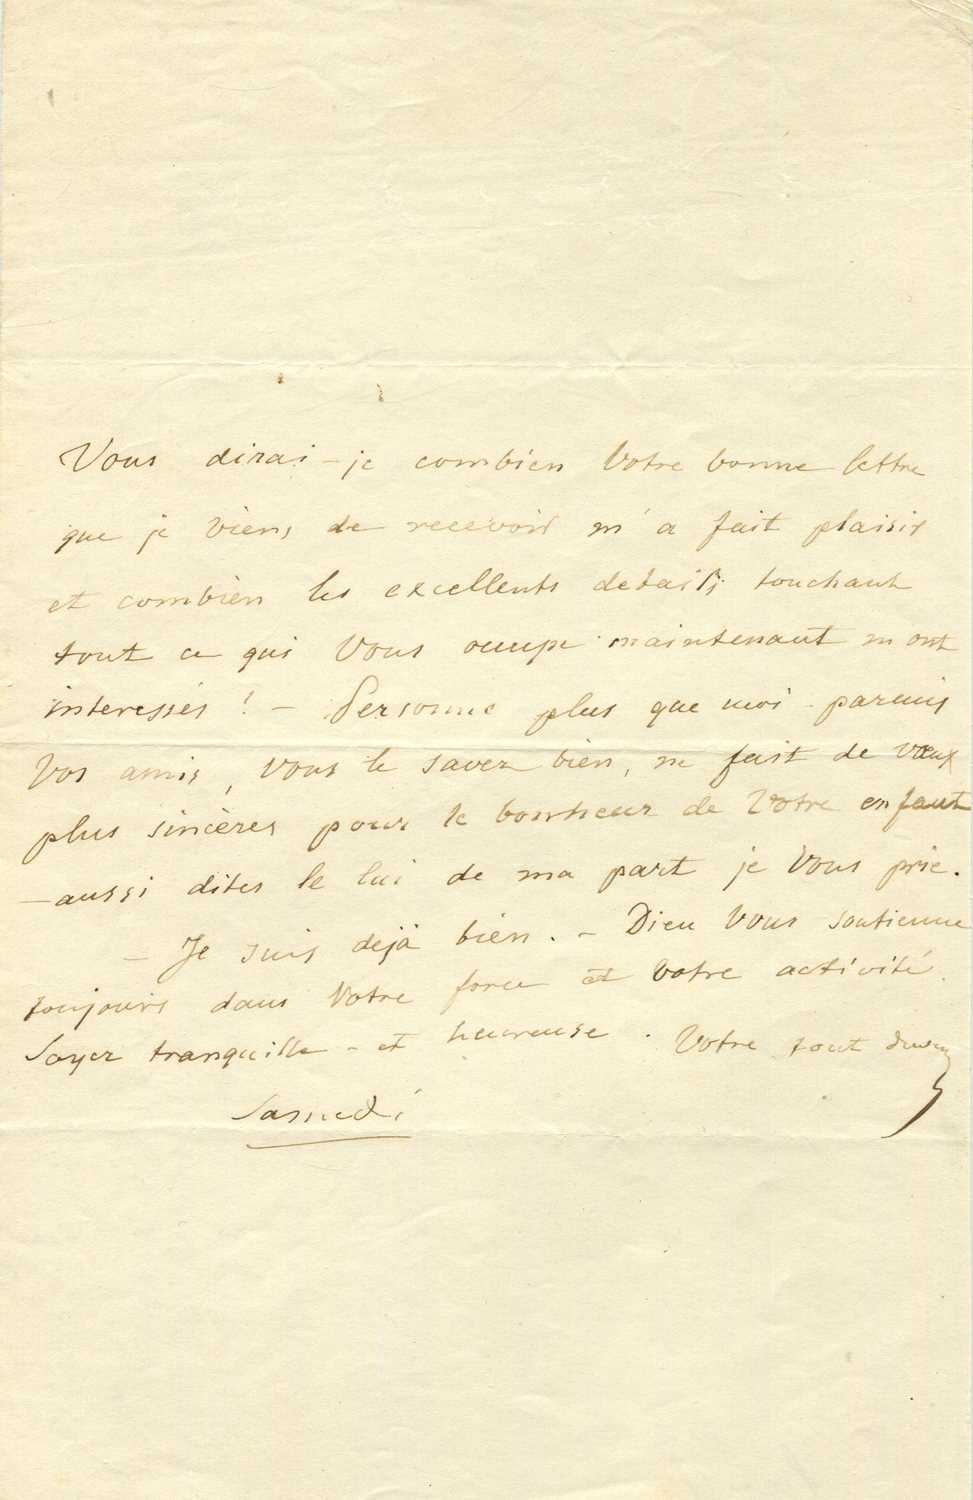 Vous dirai-je combien Votre bonne lettre
que je viens de recevoir m'a fait plaisir
et combien les excellents details touchant
tout ce qui Vous occupe maintenant m'ont
interessés ! – Personne plus que moi parmis
Vos amis, vous le savez bien, ne fait de vœux
plus sincères pour le bonheur de Votre enfant
– aussi dites le lui de ma part je Vous prie.
– Je suis dejà bien. – Dieu Vous soutienne
toujours dans Votre force et Votre activité.
Soyez tranquille – et heureuse. Votre tout
Samedi